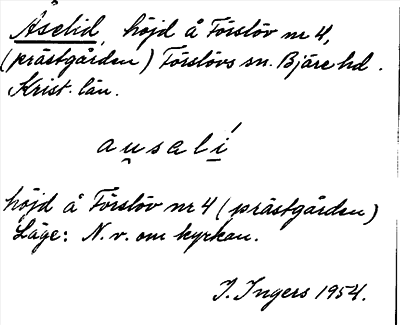 Åselid, höjd å Förslöv nr 4,
(prästgården) Förslövs sn. Bjäre hd.
Krist. län.
au̯salí̱
höjd å Förslöv nr 4 (prästgården)
Läge: N.v. om kyrkan.
I. Ingers 1954.